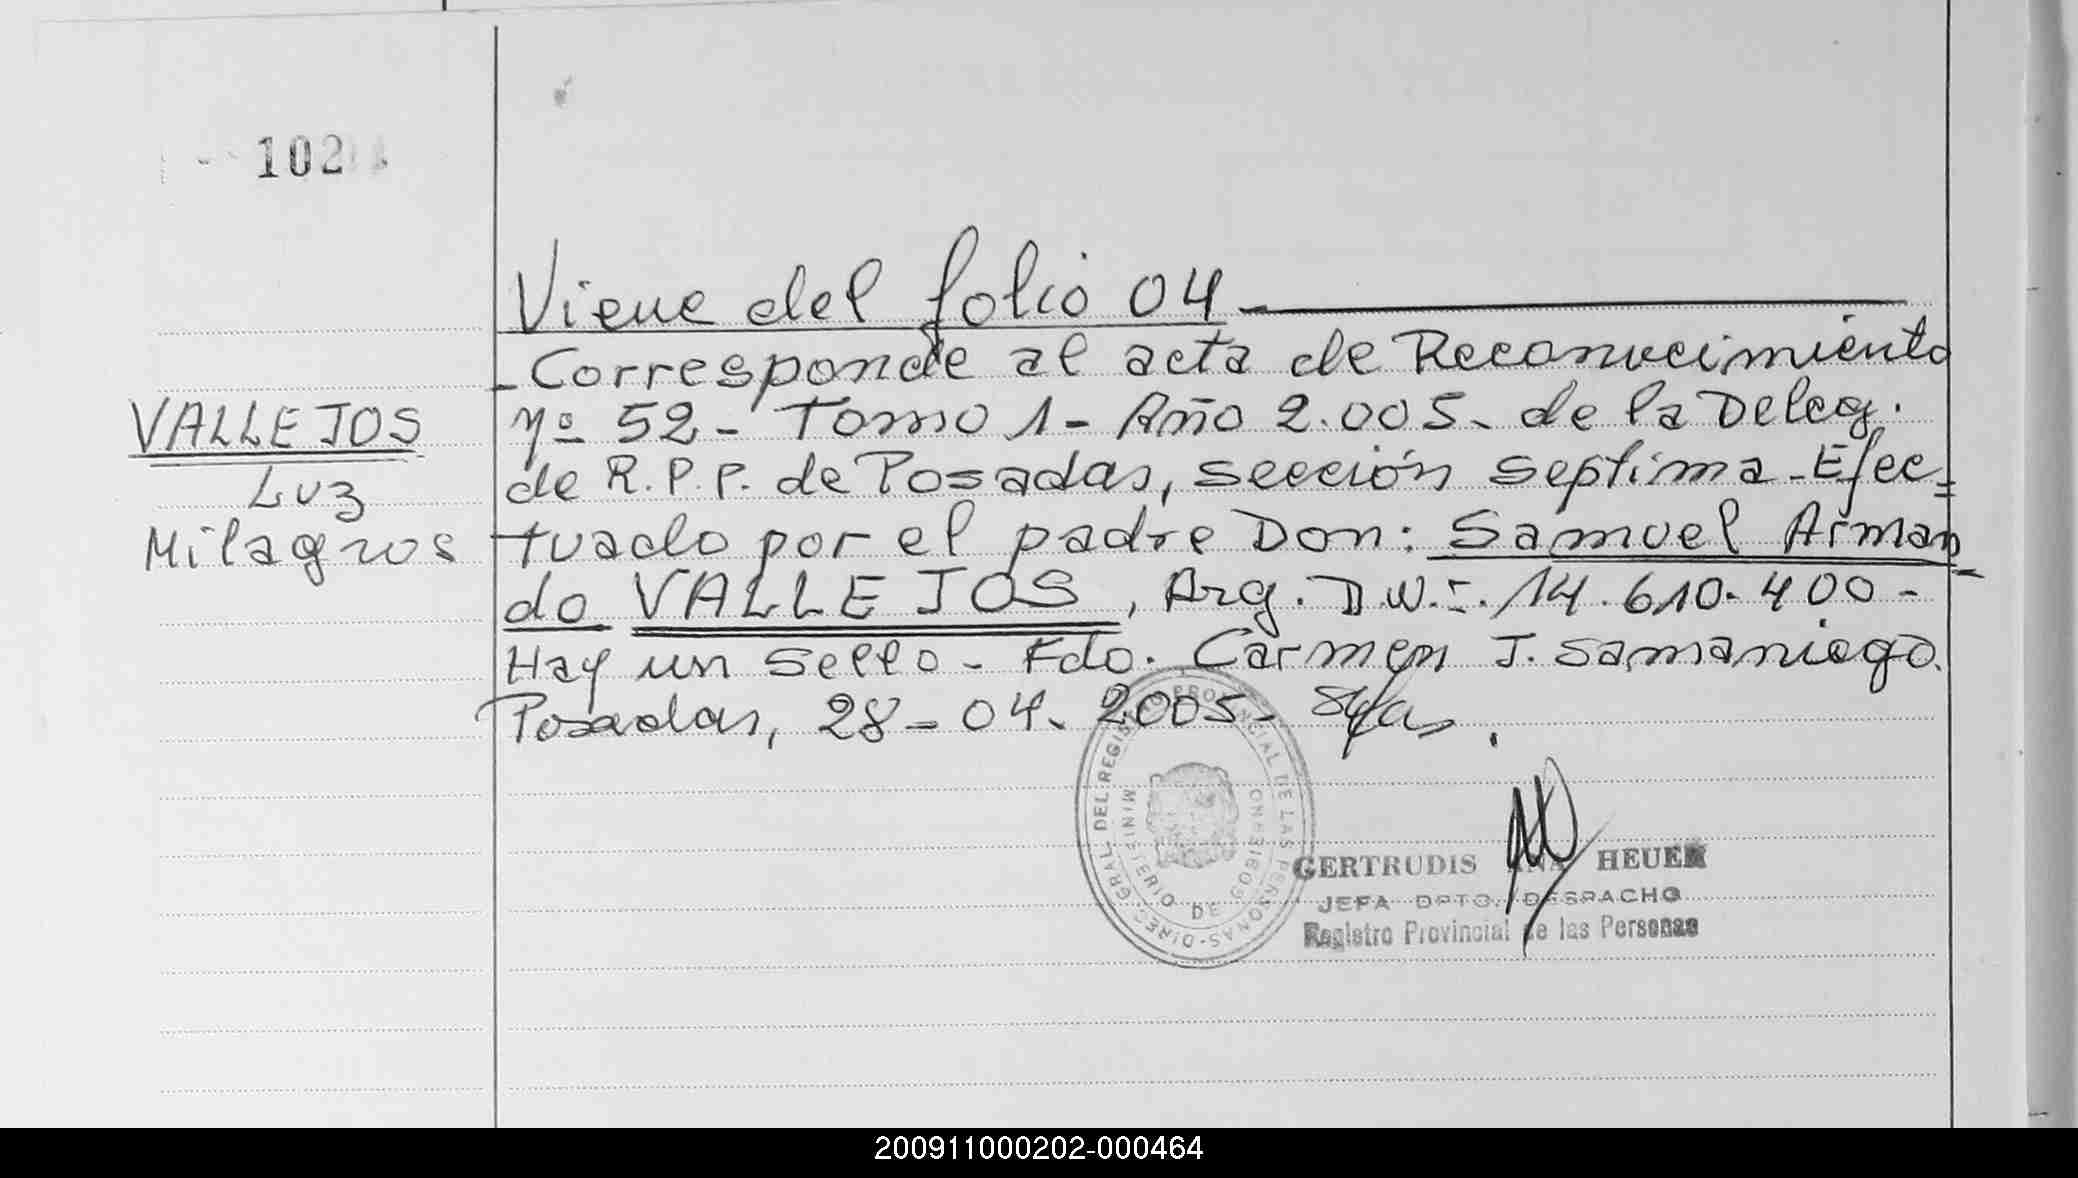 102
Viene del folio 04-
- Corresponde al acta de Reconocimiento
Nº 52 - Tomo 1 - Año 2.005 - de la Deleg.
de R.P.P. de Posadas, sección septima - Efec=
tuado por el padre Don: Samuel Arman
do VALLEJOS, Arg. D.N.I. 14.610.400 -
Hay un sello - Fdo. Carmen J. Samaniego.
Posadas, 28-04-2005-
VALLEJOS
Luz
Milagros
DIREC. GRAL. DEL REGISTRO PROVINCIAL DE LAS PERSONAS
MINISTERIO DE GOBIERNO
GERTRUDIS ANA HEUER
JEFA DPTO. DESPACHO
Registro Provincial de las Personas
200911000202-000464